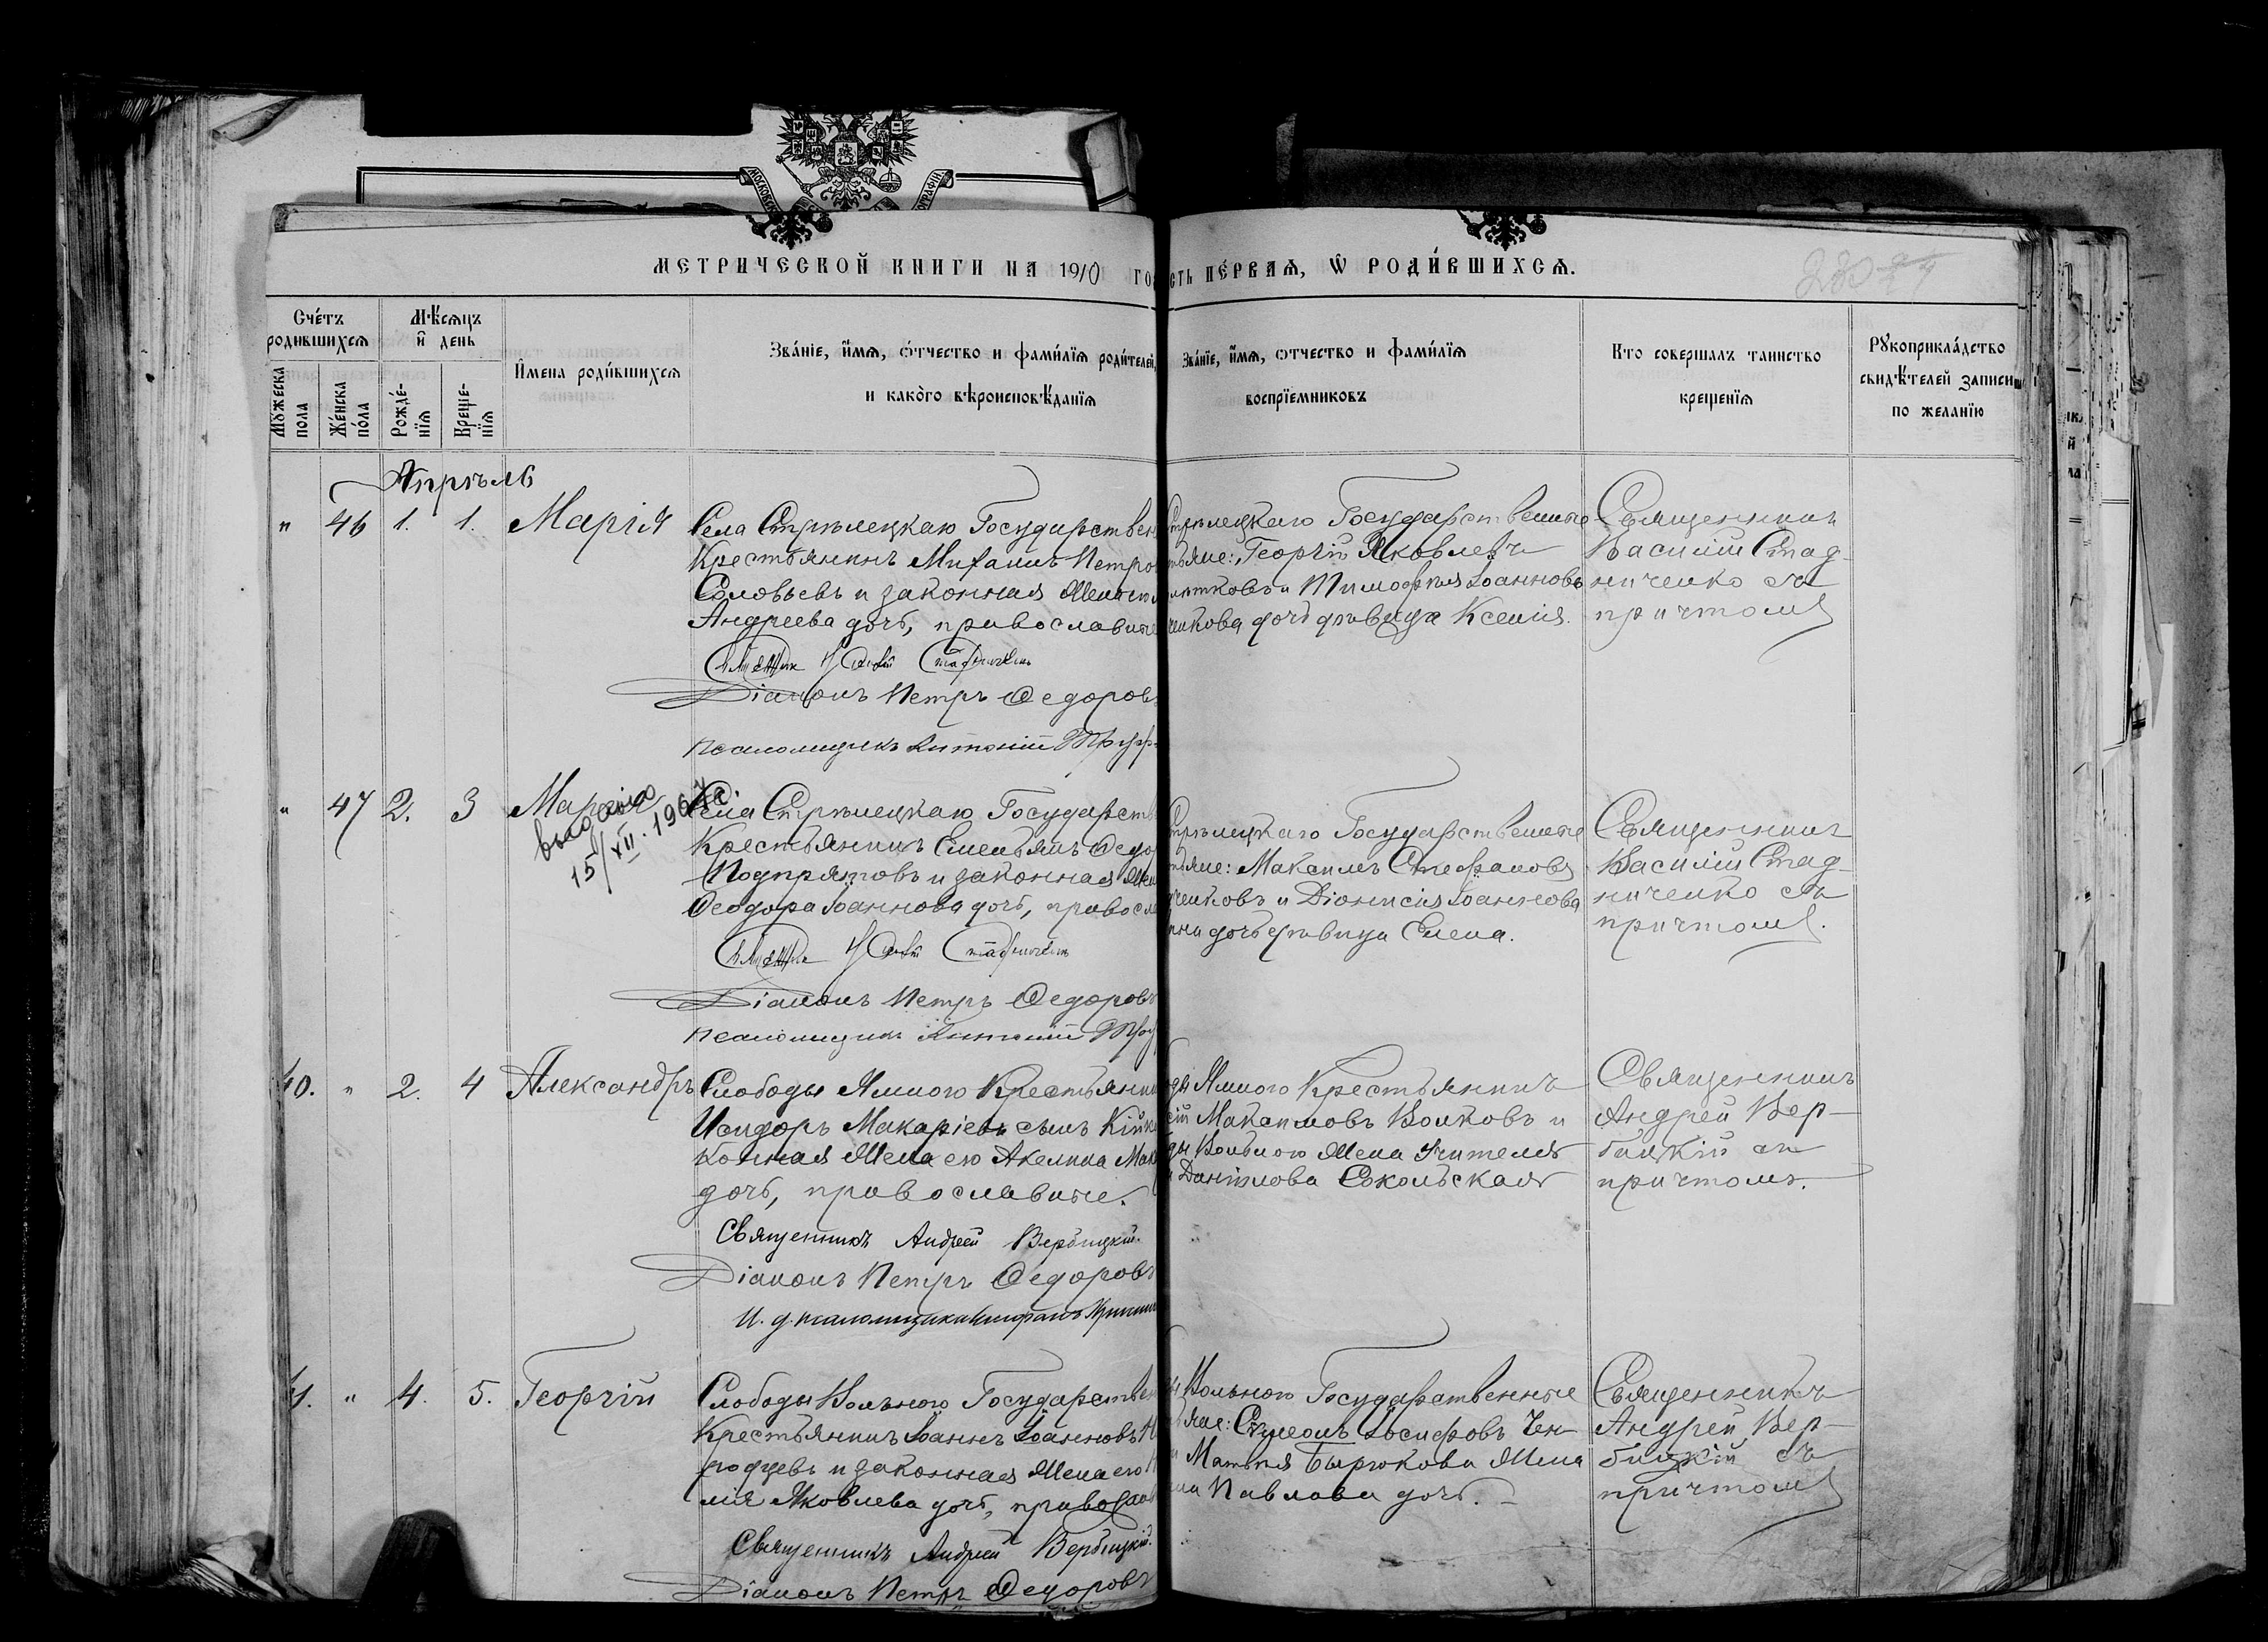 МЕТРИЧЕСКОЙ КНИГИ НА 1910 ГО
СТЬ ПЕРВАЯ, Ѡ РОДИВШИХСЯ.
Счетъ родившихся
Мѣсяцъ и день
Мужеска пола
Женска пола
Рожденія
Крещенія
Имена родившихся
Званіе, имя, отчество и фамилія родителей,
и какого вѣроисповѣданія
Званіе, имя, отчество и фамилія
воспріемниковъ
Кто совершалъ таинство
крещенія
Рукоприкладство
свидѣтелей записи
по желанію
Апрѣль
" 46 1. 1. Марія
Села Стрѣлецкаго Государствен
Крестьянинъ Михаилъ Петро
Соловьевъ и законная жена
Андреева дочь, православные
Діаконъ Петръ Ѳедоровъ
Псаломщикъ Антоній
Стрѣлецкаго Государственные
тьяне: Георгій Яковлевъ
и Тимоѳея Іоаннова
енкова дочь дѣвица Ксенія.
Священникъ
Василій Стад-
ниченко съ
причтомъ
" 47 2. 3 Марія
15/XII.196
Села Стрѣлецкаго Государств
Крестьянинъ Емельянъ Ѳедо
Подпрятовъ и законная же
Ѳеодора Іоаннова дочь, правосла
Діаконъ Петръ Ѳедоровъ
Псаломщикъ Антоній
Стрѣлецкаго Государственные
тьяне: Максимъ Стефановъ
ченковъ и Діонисія Іоаннова
дочь дѣвица Елена.
Священникъ
Василій Стад-
ниченко съ
причтомъ.
40. " 2. 4 Александръ
Слободы Ямного Крестьянин
Исидоръ Макаріевъ сынъ
конная жена его Акелина Мак
дочь, православные.
Священникъ Андрей Вербицкій.
Діаконъ Петръ Ѳедоровъ
И. д. псаломщика
ды Ямного Крестьянинъ
Максимовъ Волковъ и
ды Вольного жена Учителя
Даніилова Сокольская
Священникъ
Андрей Вер-
бицкій съ
причтомъ.
41. " 4. 5. Георгій
Слободы Вольного Государствен
Крестьянинъ Іоаннъ Іоанновъ
родцевъ и законная жена его
лія Яковлева дочь, православ
Священникъ Андрей Вербицкій.
Діаконъ Петръ Ѳедоровъ
Вольного Государственные
тьяне: Симеонъ Іосифовъ Чен-
и Матвѣя Бырюкова жена
Павлова дочь.
Священникъ
Андрей Вер-
бицкій съ
причтомъ